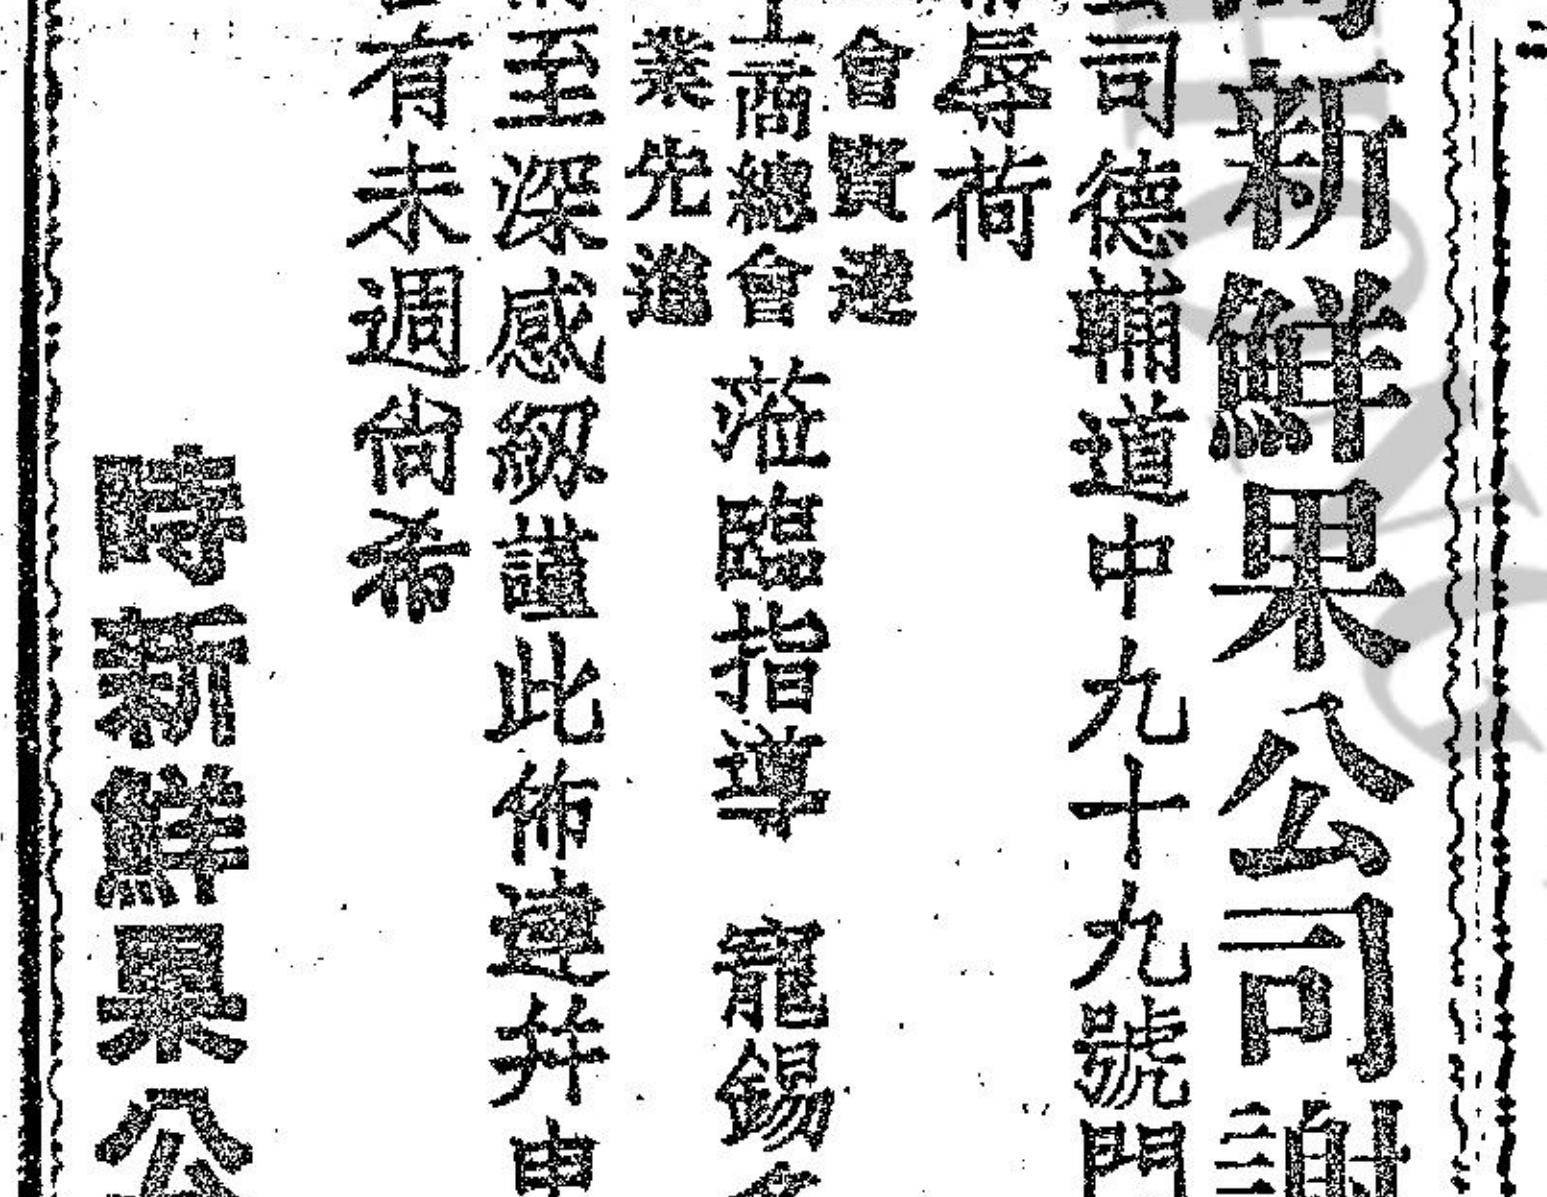 新鮮果公司謝
司德輔道中九十九號門
辱荷
會寶邊
工商總會
業先進
蒞臨指導 寵錫
至深感紉謹此佈達并申
有未週尙希
時新鮮果公